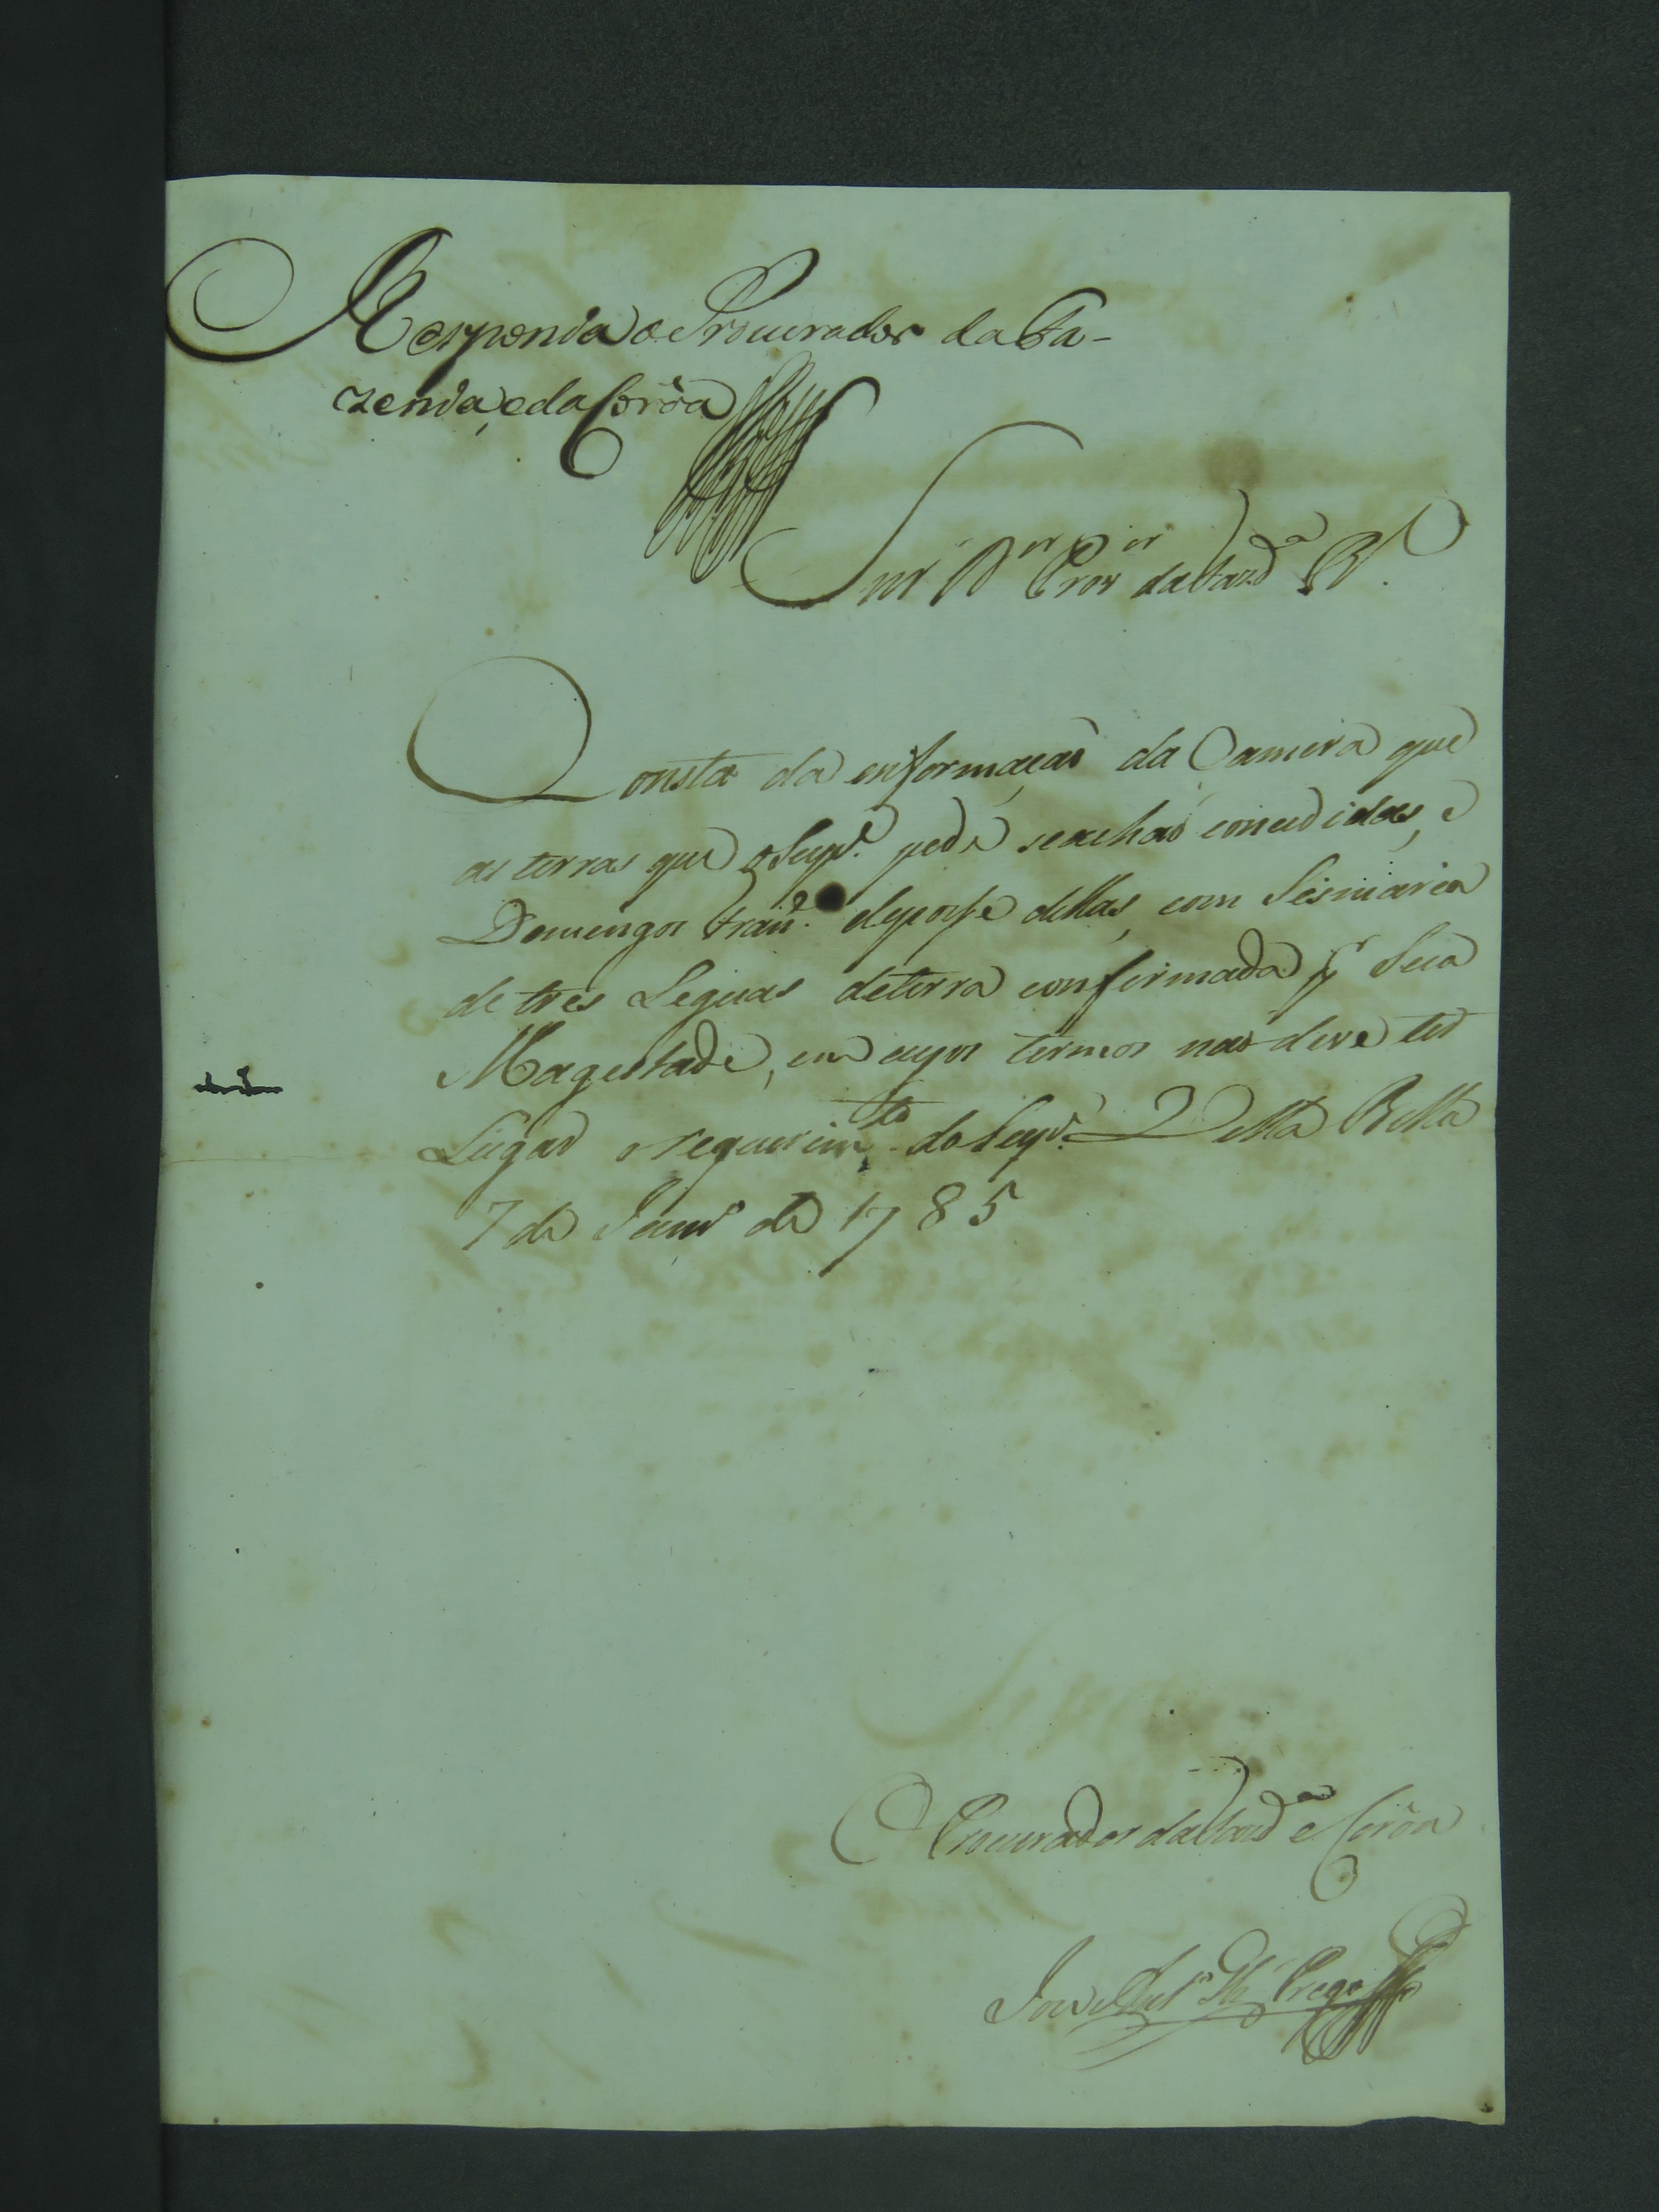 Responda o Procurador da Fa-
zenda, e da Corôa
Snr Dr Pror da Fazda R.
Consta da enformaçaõ da Camera que
as terras que o Supe. pede se achaõ concedidas, e
Domingos Fran.co de posse dellas, com Sismaria
de tres Legoas de terra confirmada pr Sua
Magestade, em cujos termos naõ deve ter
Lugar o requerimto do Supe. Villa Bella
7 de Janro de 1785
O Procurador da Fazda e Corôa
Prego